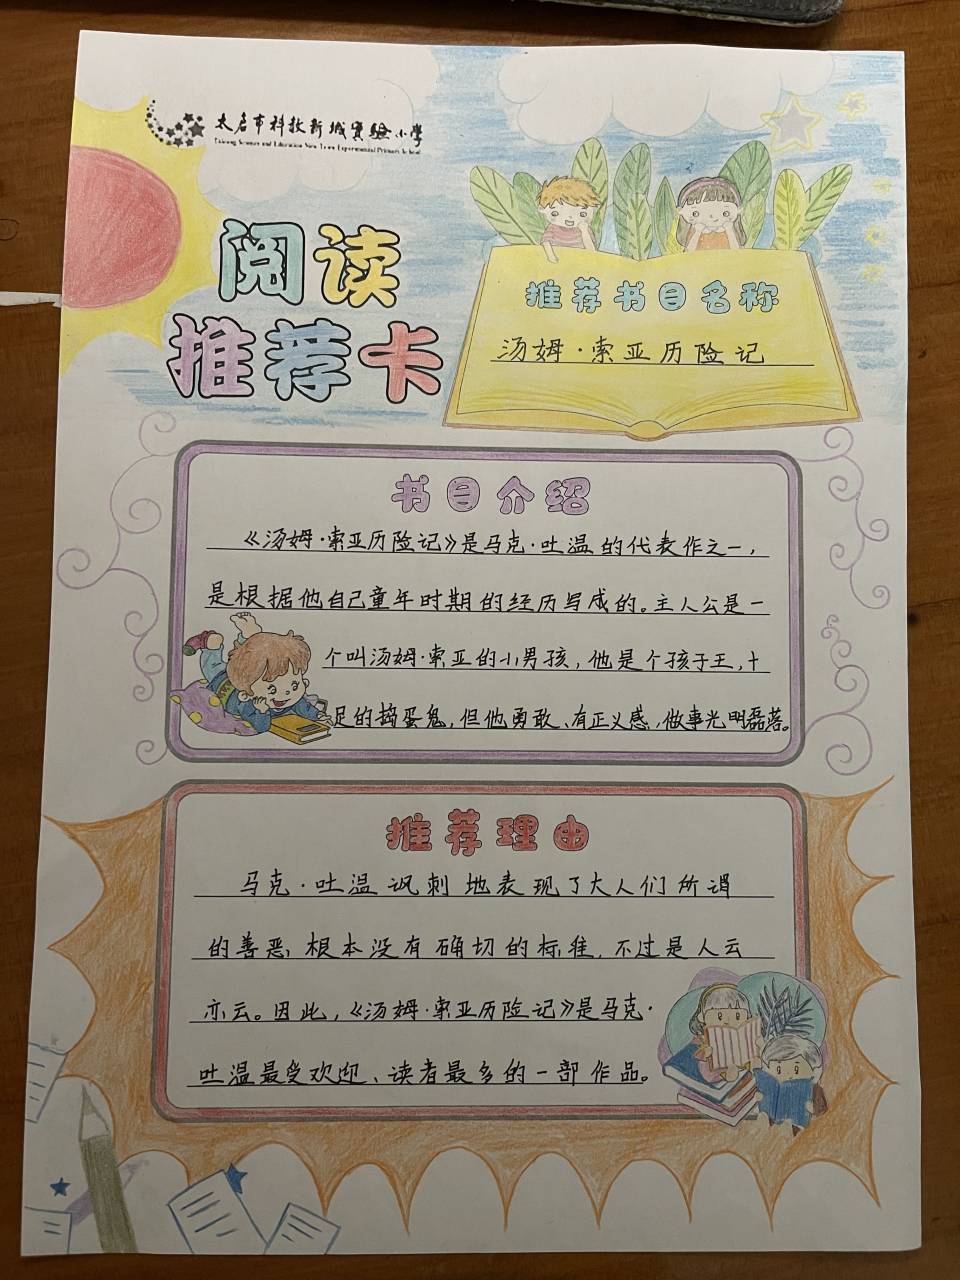 太仓市科教新城实验小学
Taicang Science and Education New Town Experimental Primary School
阅读
推荐卡
推荐书目名称
汤姆·索亚历险记
书目介绍
《汤姆·索亚历险记》是马克·吐温的代表作之一，
是根据他自己童年时期的经历写成的。主人公是一
个叫汤姆·索亚的小男孩，他是个孩子王，十
足的捣蛋鬼，但他勇敢、有正义感，做事光明磊落。
推荐理由
马克·吐温讽刺地表现了大人们所谓
的善恶根本没有确切的标准，不过是人云
亦云。因此，《汤姆·索亚历险记》是马克·
吐温最受欢迎、读者最多的一部作品。